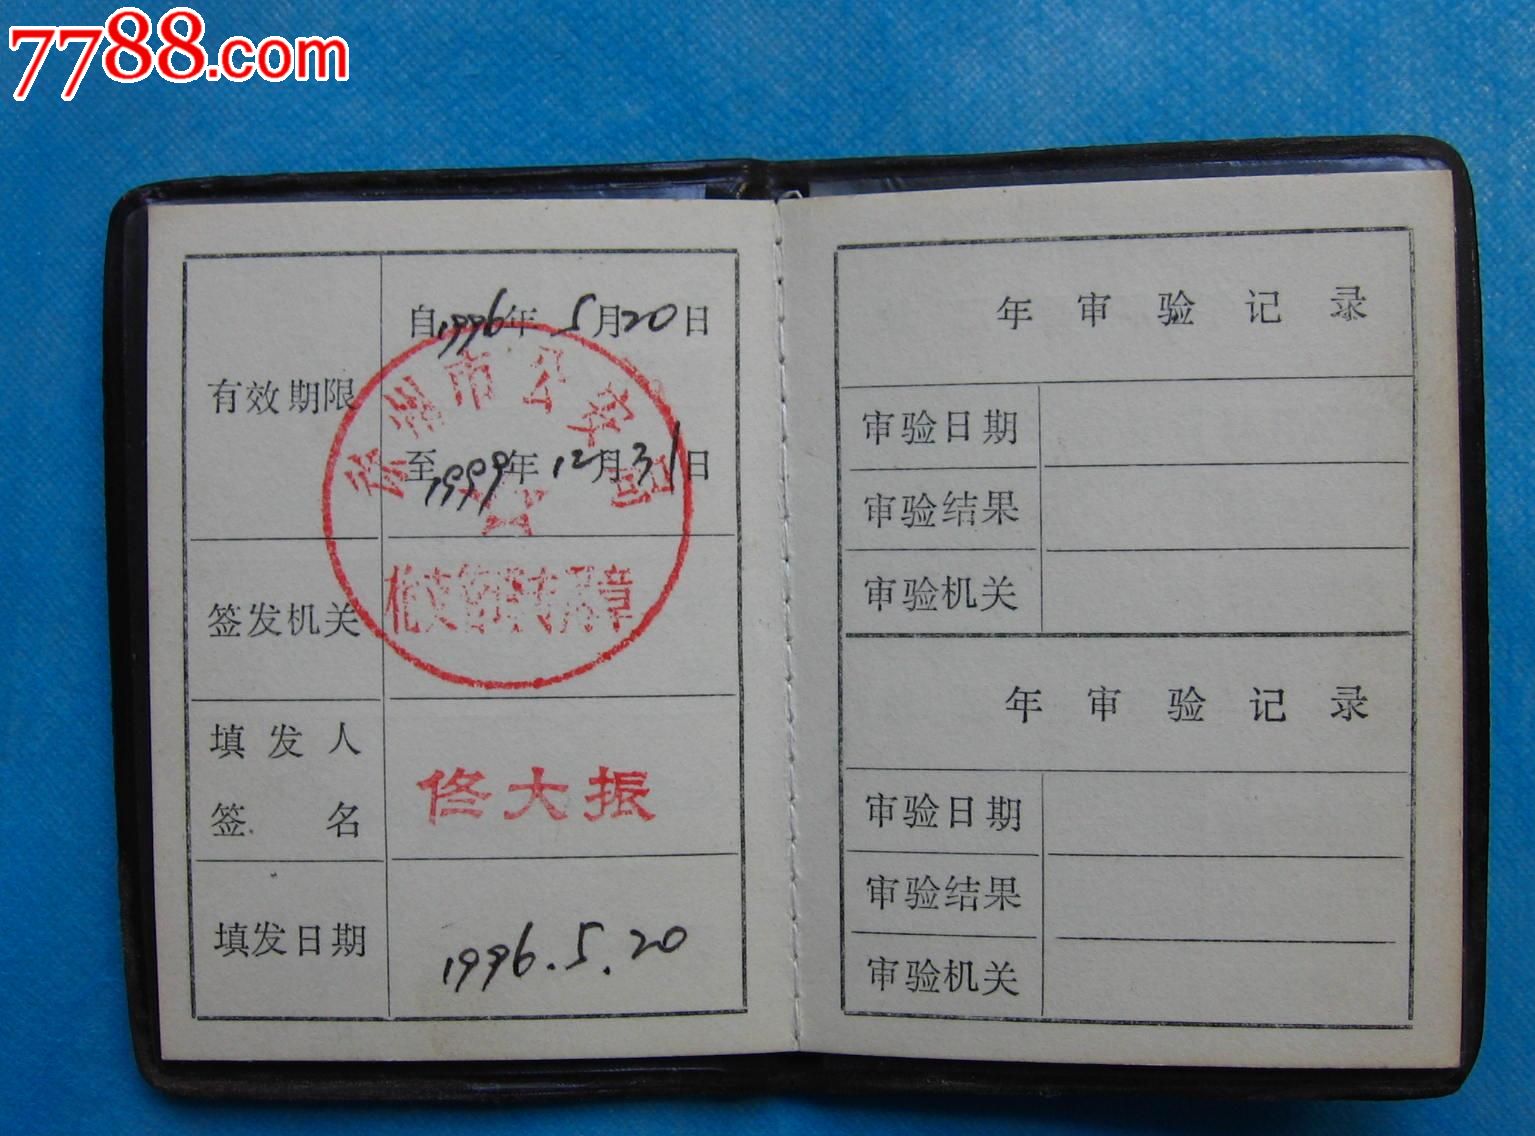 7788.com
自1996年5月20日
有效期限
至1999年12月31日
徐州市公安局
签发机关
专用章
填发人
签名
佟大振
填发日期
1996.5.20
年审验记录
审验日期
审验结果
审验机关
年审验记录
审验日期
审验结果
审验机关